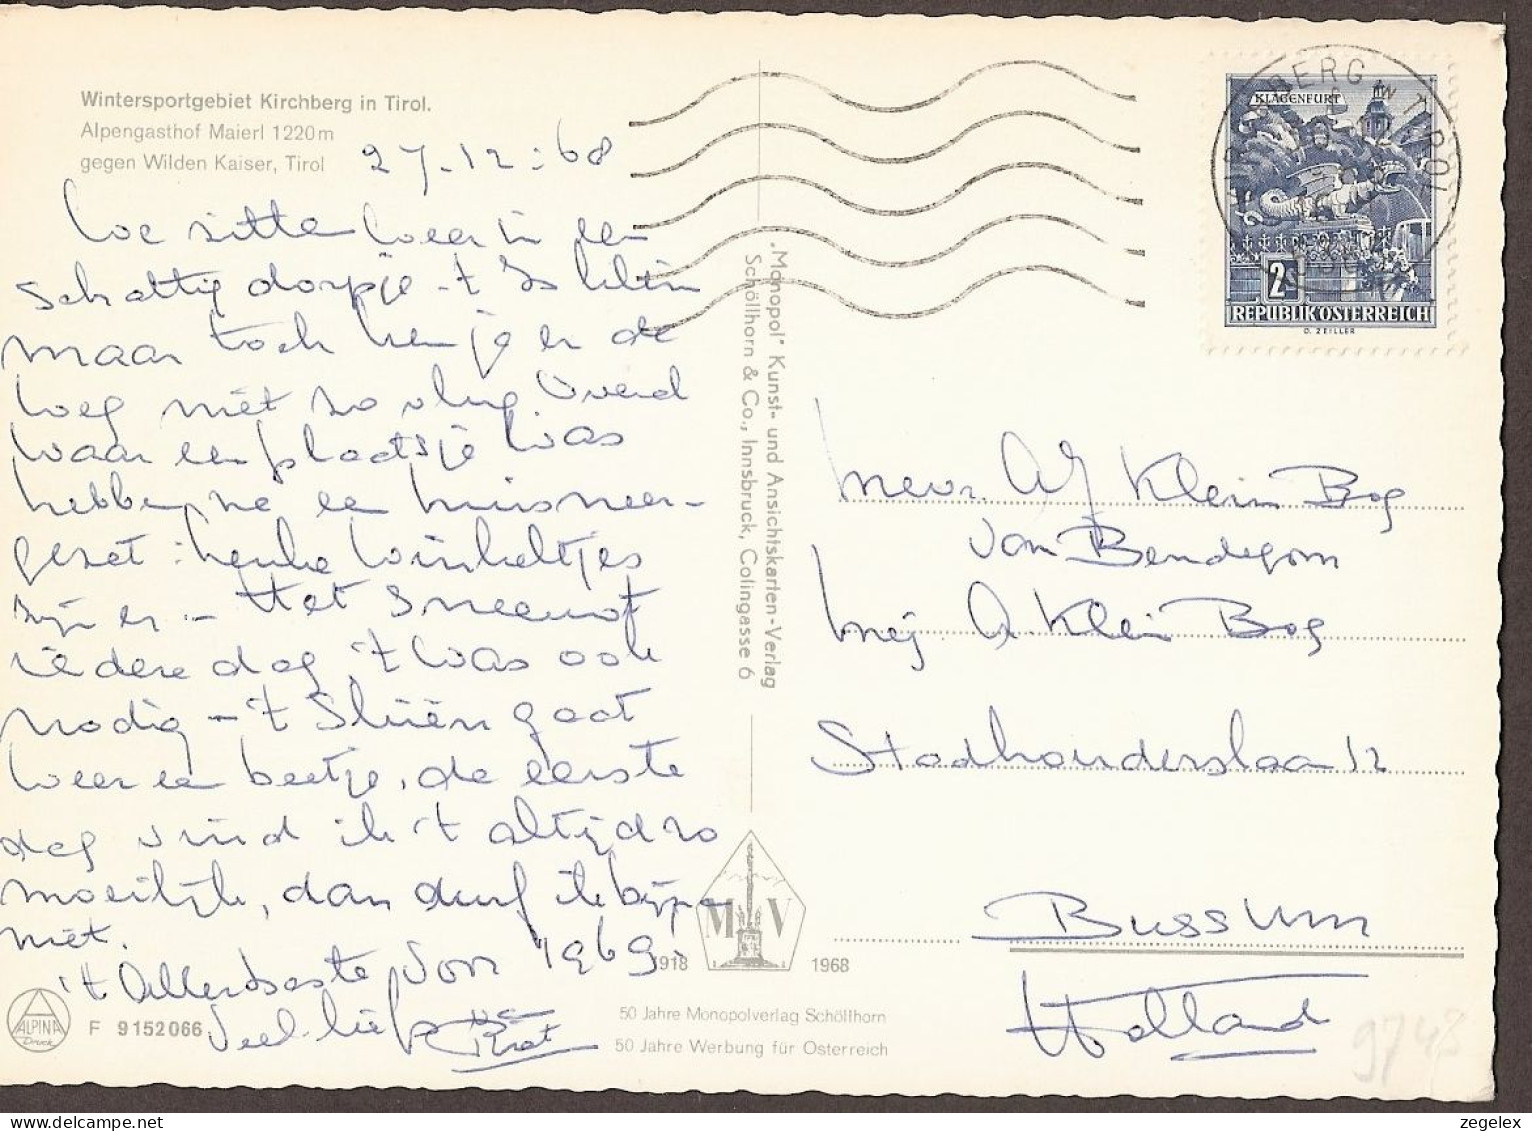 Wintersportgebiet Kirchberg in Tirol.
Alpengasthof Maierl 1220m
gegen Wilden Kaiser, Tirol
27.12.68
We zitten weer in een
schattig dorpje - 't Is klein
maar toch ken je er de
weg niet zo vlug. Overal
waar een plaatsje was
hebben ze een huis neer-
gezet: leuke winkeltjes
zijn er - Het sneeuwt
iedere dag, 't was ook
nodig - 't Skiën gaat
weer een beetje, de eerste
dag vind ik 't altijd zo
moeilijk, dan durf ik bijna
niet.
't Allerbeste voor 1969.
Veel liefs
F 9152066
ALPINA
Druck
„Monopol" Kunst- und Ansichtskarten-Verlag
Schöllhorn & Co., Innsbruck, Colingasse 6
M V
1918 1968
50 Jahre Monopolverlag Schöllhorn
50 Jahre Werbung für Österreich
KIRCHBERG IN TIROL
KLAGENFURT
2S
REPUBLIK ÖSTERREICH
O. ZEILLER
Mevr. Klein Bog
van Bendegom
Mej. A. Klein Bog
Stadhouderslaan 12
Bussum
Holland
9748
zegelex